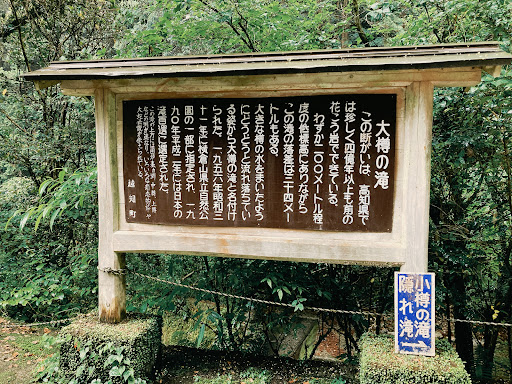 大樽の滝
この断がいは、高知県で
は珍しく四億年以上も前の
花こう岩でできている。
わずか二〇〇メートル程
度の低標高にありながら
この滝の落差は三十四メー
トルもある。
大きな樽の水をまいたよう
にどうどうと流れ落ちてい
る姿から大樽の滝と名付け
られた。一九五六年昭和三
十一年に横倉山県立自然公
園の一部に指定され、一九
九〇年平成二年には日本の
滝百選に選定された。
越知町
小樽の滝
隠れ滝